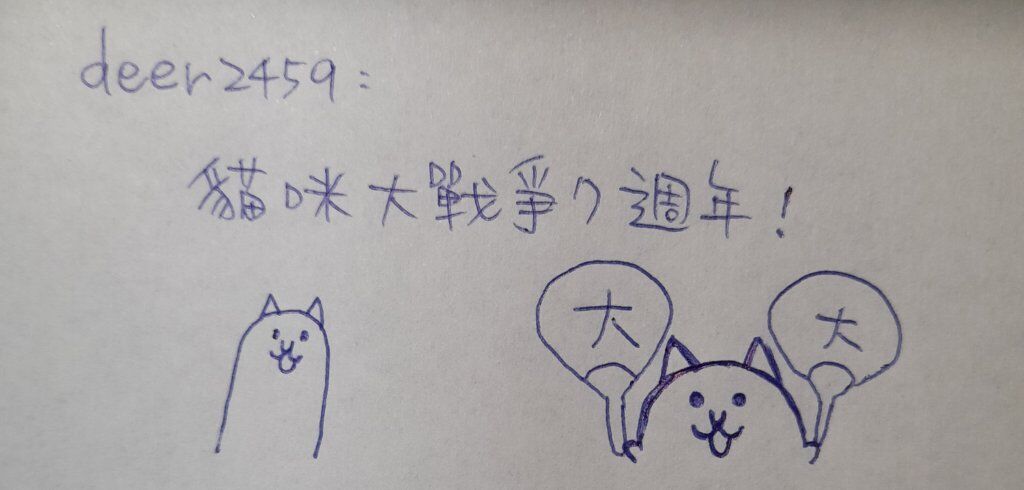 deer2459:
貓咪大戰爭7週年!
大
大